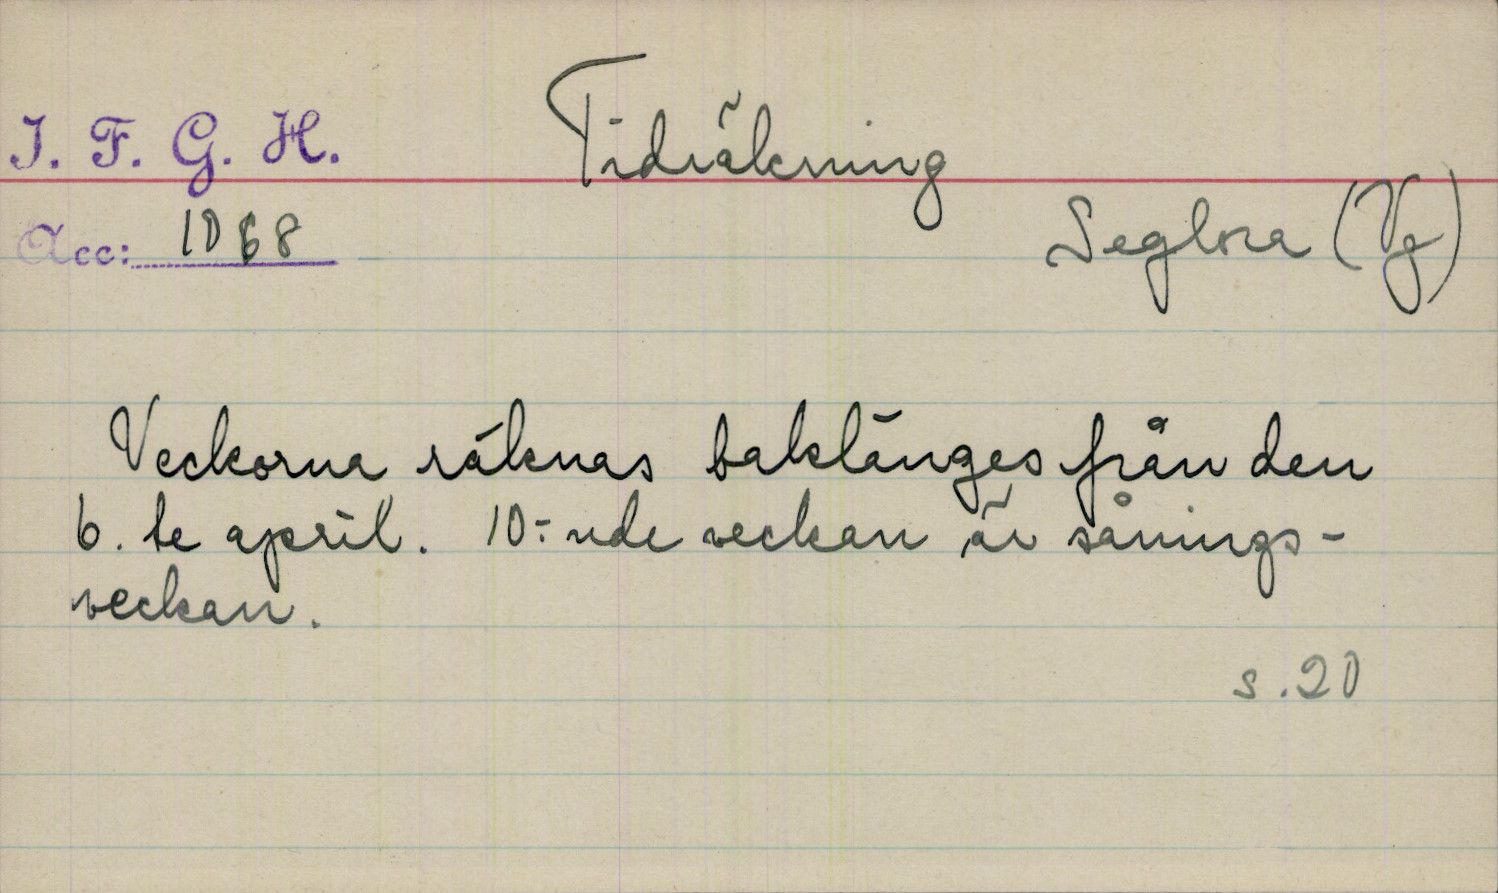 I. F. G. H.
Tidräkning
Acc: 1068
Seglora (Vg)
Veckorna räknas baklänges från den
6. te april. 10:nde veckan är sånings-
veckan.
s. 20